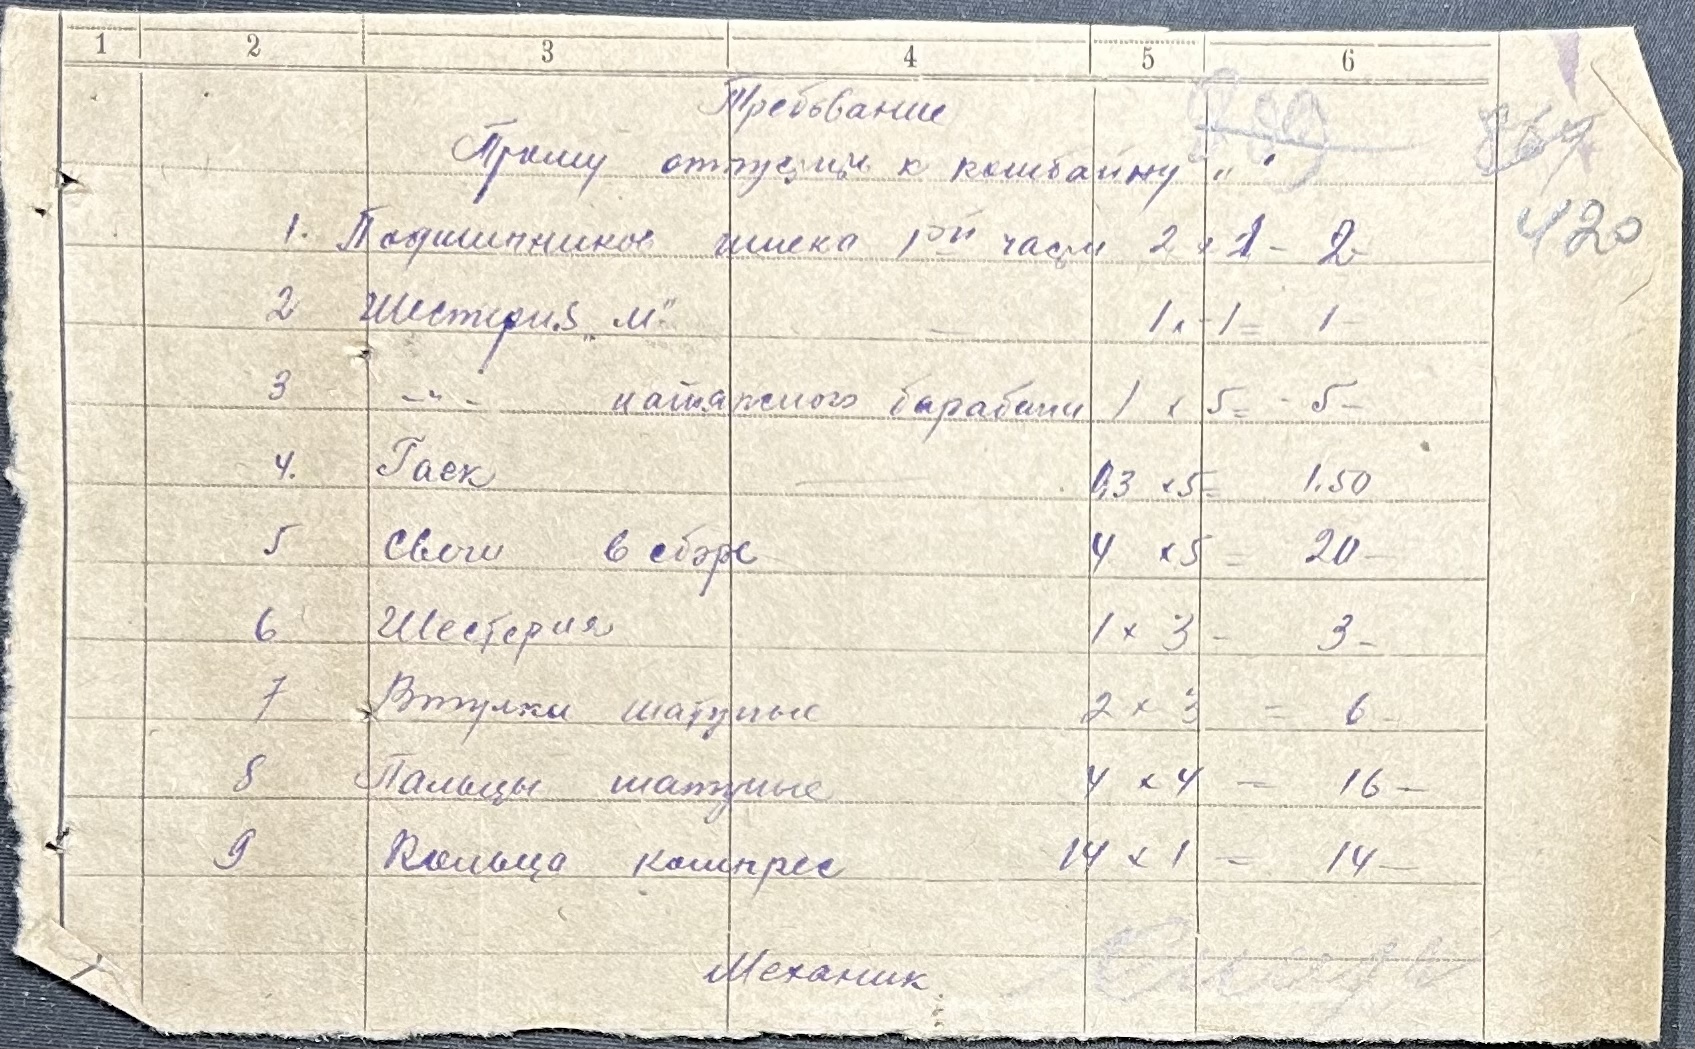 1 2 3 4 5 6
Требование
Прошу отпустить к комбайну " "
1. Подшипников шнека 1ой части 2 х 1 - 2-
2 Шестерня „М" — 1 х 1 = 1-
3 -"- натяжного барабана 1 х 5 = 5-
4. Гаек — 0,3 х 5 = 1.50
5 Свечи в сборе 4 х 5 = 20-
6 Шестерня 1 х 3 - 3-
7 Втулки шатуные 2 х 3 = 6-
8 Пальцы шатуные 4 х 4 = 16-
9 Кольца компрес 14 х 1 - 14-
Механик
420